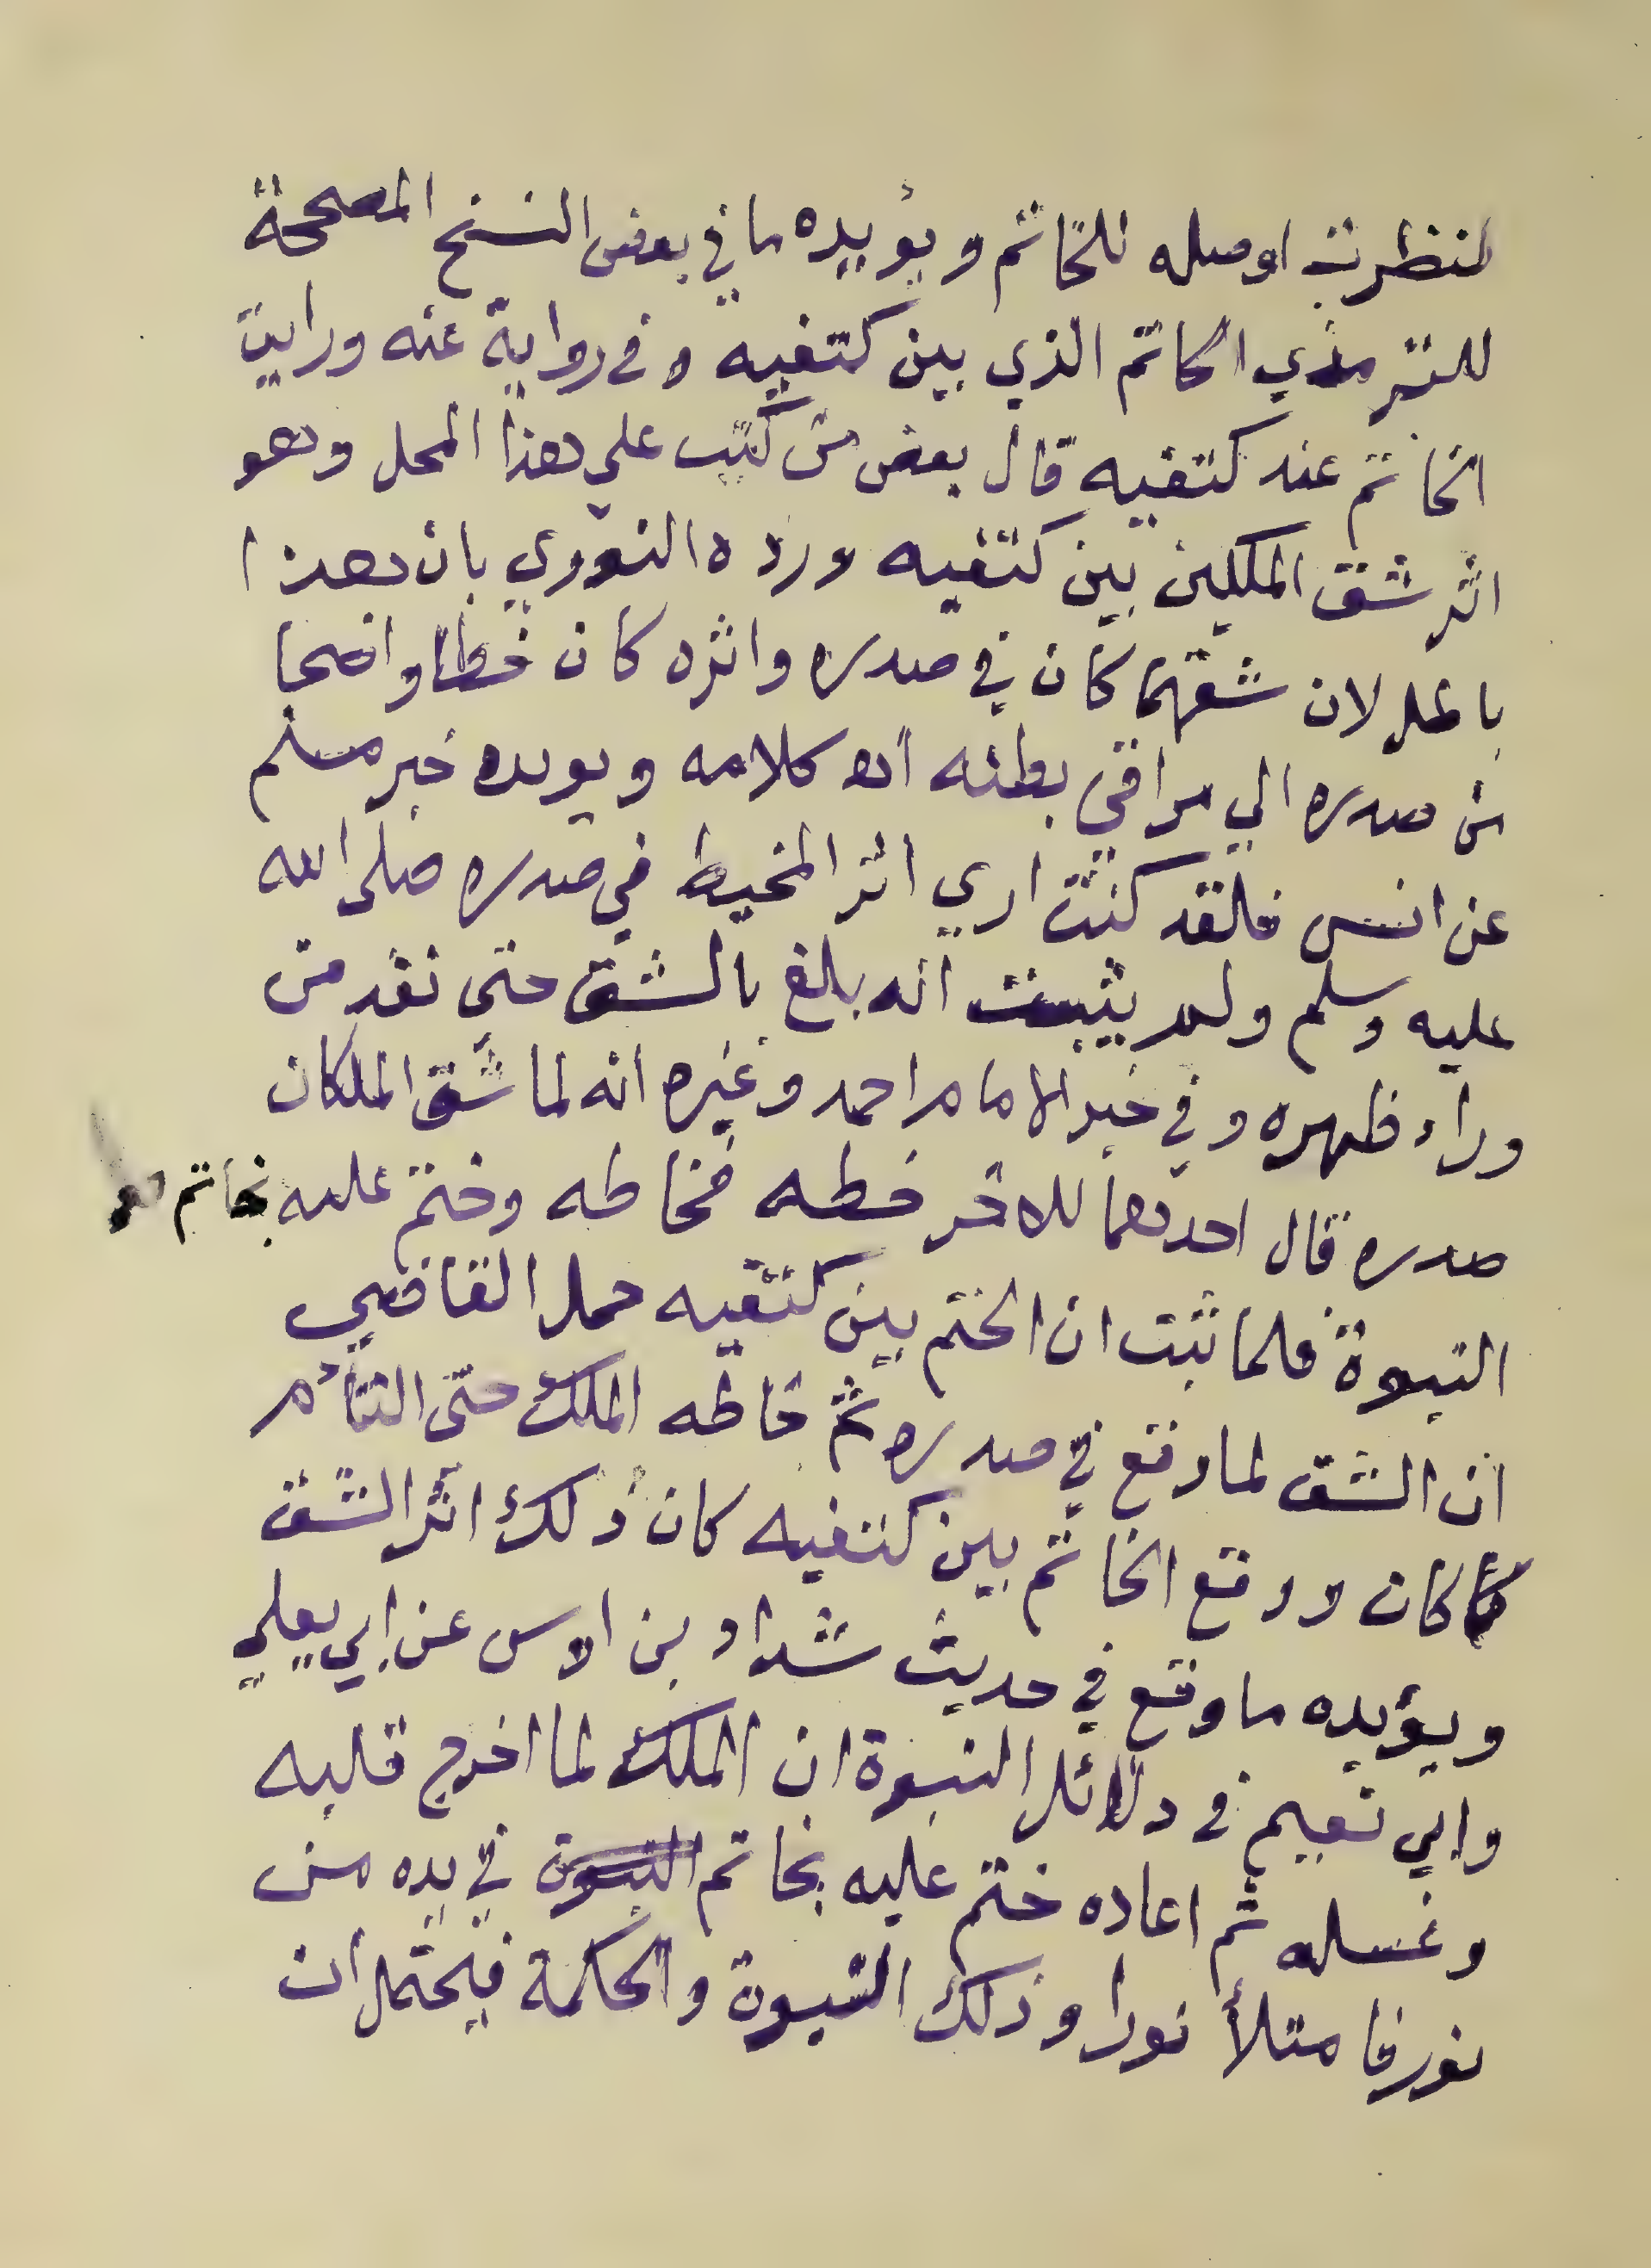 لنظرت اوصله للخاتم ويؤيده ما في بعض النسخ المصححة
للترمذي الخاتم الذي بين كتفيه وفي رواية عنه ورايت
الخاتم عند كتفيه قال بعض من كتب علي هذا المحل وهو
اثر شق الملكين بين كتفيه ورده النووي بان هذا
باطل لان شقهما كان في صدره واثره كان خطا واضحا
من صدره الي مراقي بطنه اه كلامه ويويده خبر مسلم
عن انس فلقد كنت اري اثر المخيط في صدره صلى الله
عليه وسلم ولم يثبت انه بلغ بالشق حتى نفد من
وراء ظهره وفي خبر الامام احمد وغيره انه لما شق الملكان
صدره قال احدهما للاخر خطه فخاطه وختم عليه بخاتم
النبوة فلما ثبت ان الختم بين كتفيه حمل القاضي
ان الشق لما وقع في صدره ثم خاطه الملك حتى التأم
كما كان ووقع الخاتم بين كتفيه كان ذلك اثر الشق
ويؤيده ما وقع في حديث شداد بن اوس عن ابي يعلي
وابي نعيم في دلائل النبوة ان الملك لما اخرج قلبه
وغسله ثم اعاده ختم عليه بخاتم النبوة في يده من
نور فامتلأ نورا وذلك النبوة والحكمة فيحتمل ان